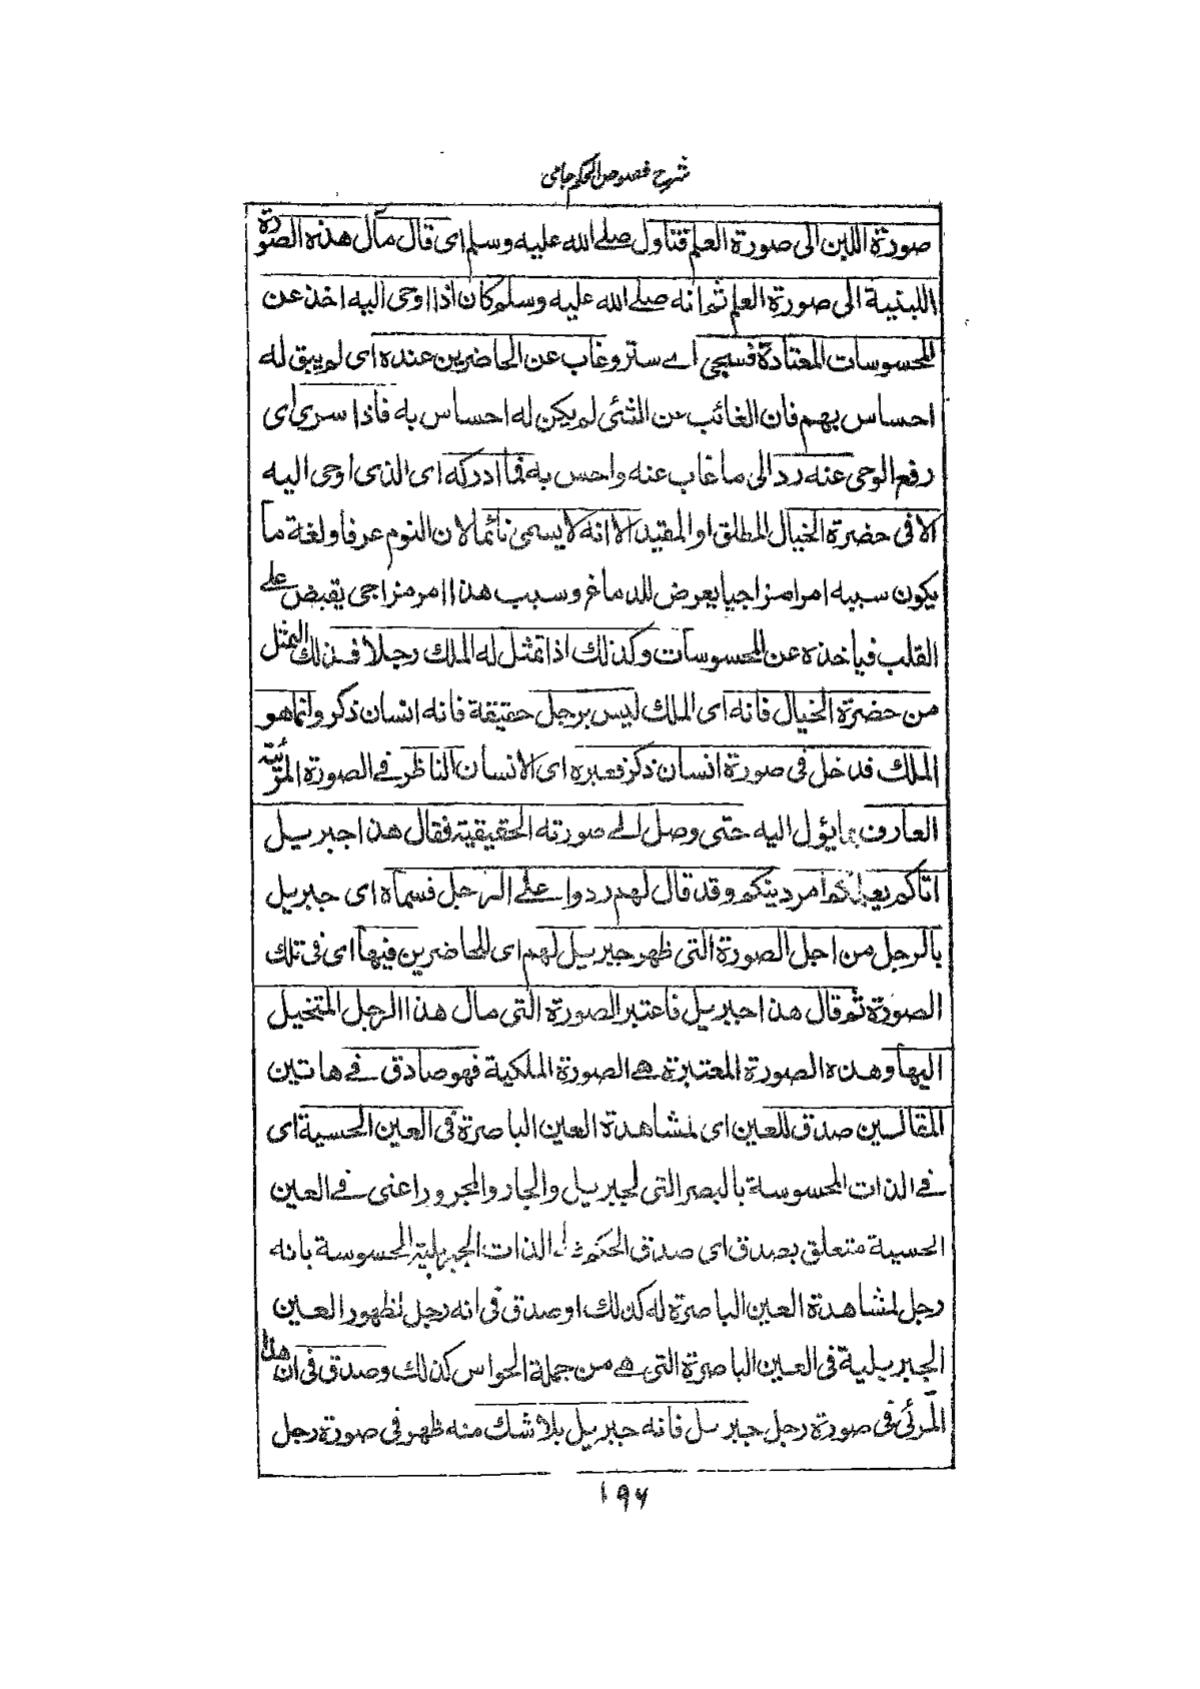 شرح فصوص الحكم جامى
صورة اللبن الى صورة العلم فتاول صلے الله عليه وسلم اى قال مآل هذه الصورة
اللبنية الى صورة العلم ثم انه صلے الله عليه وسلم كان اذا اوحى اليه اخذ عن
المحسوسات المعتادة فسجى اے ستر وغاب عن الحاضرين عنده اى لم يبق له
احساس بهم فان الغائب عن الشئى لم يكن له احساس به فاذا سرى اى
رفع الوحى عنه رد الى ما غاب عنه واحس به فما ادركه اى الذى اوحى اليه
الا فى حضرة الخيال المطلق او المقيد الا انه لا يسمى نائما لان النوم عرفا ولغة ما
يكون سببه امرا مزاجيا يعرض للدماغ وسبب هذا امر مزاجى يقبض علے
القلب فيأخذه عن المحسوسات وكذلك اذا تمثل له الملك رجلا فذلك التمثل
من حضرة الخيال فانه اى الملك ليس برجل حقيقة فانه انسان ذكر وانما هو
الملك فدخل فى صورة انسان ذكر فعبره اى الانسان الناظر فے الصورة المرئية
العارف بما يؤل اليه حتى وصل الے صورته الحقيقية فقال هذا جبريل
اتاكم يعلمكم امر دينكم وقد قال لهم ردوا علے الرجل فسماه اى جبريل
بالرجل من اجل الصورة التى ظهر جبريل لهم اى للحاضرين فيها اى فى تلك
الصورة ثم قال هذا جبريل فاعتبر الصورة التى مال هذا الرجل المتخيل
اليها وهذه الصورة المعتبرة هے الصورة الملكية فهو صادق فے هاتين
المقالتين صدق للعين اى لمشاهدة العين الباصرة فى العين الحسية اى
فے الذات المحسوسة بالبصر التى لجبريل والجار والمجرور اعنى فے العين
الحسية متعلق بصدق اى صدق الحكم الذات الجبريلية المحسوسة بانه
رجل لمشاهدة العين الباصرة له كذلك او صدق فى انه رجل لظهور العين
الجبريلية فى العين الباصرة التى هے من جملة الحواس كذلك وصدق فى ان هذا
المرئى فى صورة رجل جبريل فانه جبريل بلا شك منه ظهر فى صورة رجل
۱۹۶